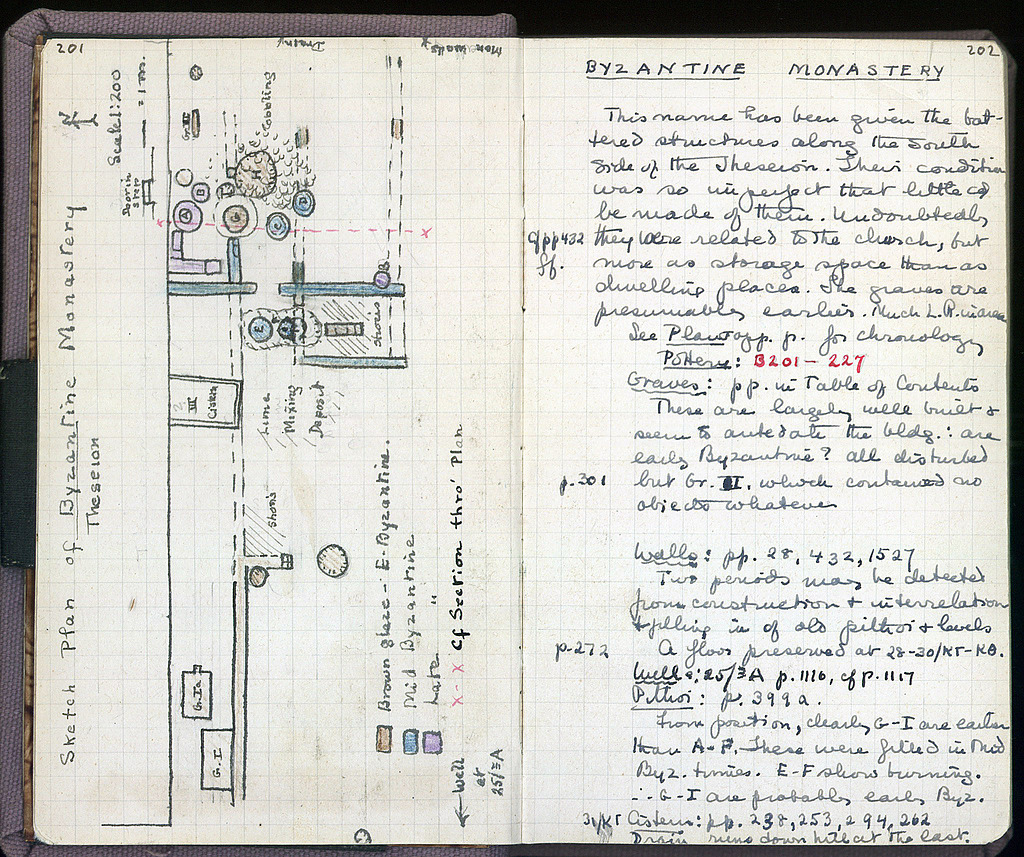 201
Sketch Plan of Byzantine Monastery
Theseion
N
Scale 1:200
= 1 m.
Door in
step
Gr. III
Cobbling
A
B
G
H
C
D
E
III
Cistern
Lime
Mixing
Deposit
Shoris
Shoris
Gr. Ia
Gr. I
Brown glaze - E. Byzantine.
Mid Byzantine
Late "
X - X Cf Section thro' Plan
Well
at
25/ΙΞA
202
BYZANTINE MONASTERY
This name has been given the bat-
tered structures along the South
side of the Theseion. Their condition
was so imperfect that little cd
be made of them. Undoubtedly
cf pp 432 they were related to the church, but
ff. more as storage space than as
dwelling places. The graves are
presumably earlier. Much L.R. in area
See Plan opp. p. for chronology
Pottery: B201 - 227
Graves: pp. in Table of Contents
These are largely well built &
seem to antedate the bldg. ∴ are
early Byzantine? all disturbed
p. 301 but Gr. III. which contained no
objects whatever
Walls: pp. 28, 432, 1527
Two periods may be detected
from construction & interrelation
& filling in of old pithoi & levels
p. 272 A floor preserved at 28-30/ΚΓ-ΚΘ.
Well: 25/ΙΞA p. 1116, cf p. 1117
Pithoi: p. 399a.
From position, clearly G-I are earlier
than A-F. These were filled in Mid
Byz. times. E-F show burning.
∴ G-I are probably early Byz.
31/ΚΓ Cistern: pp. 238, 253, 294, 262
Drain runs down hill at the east.